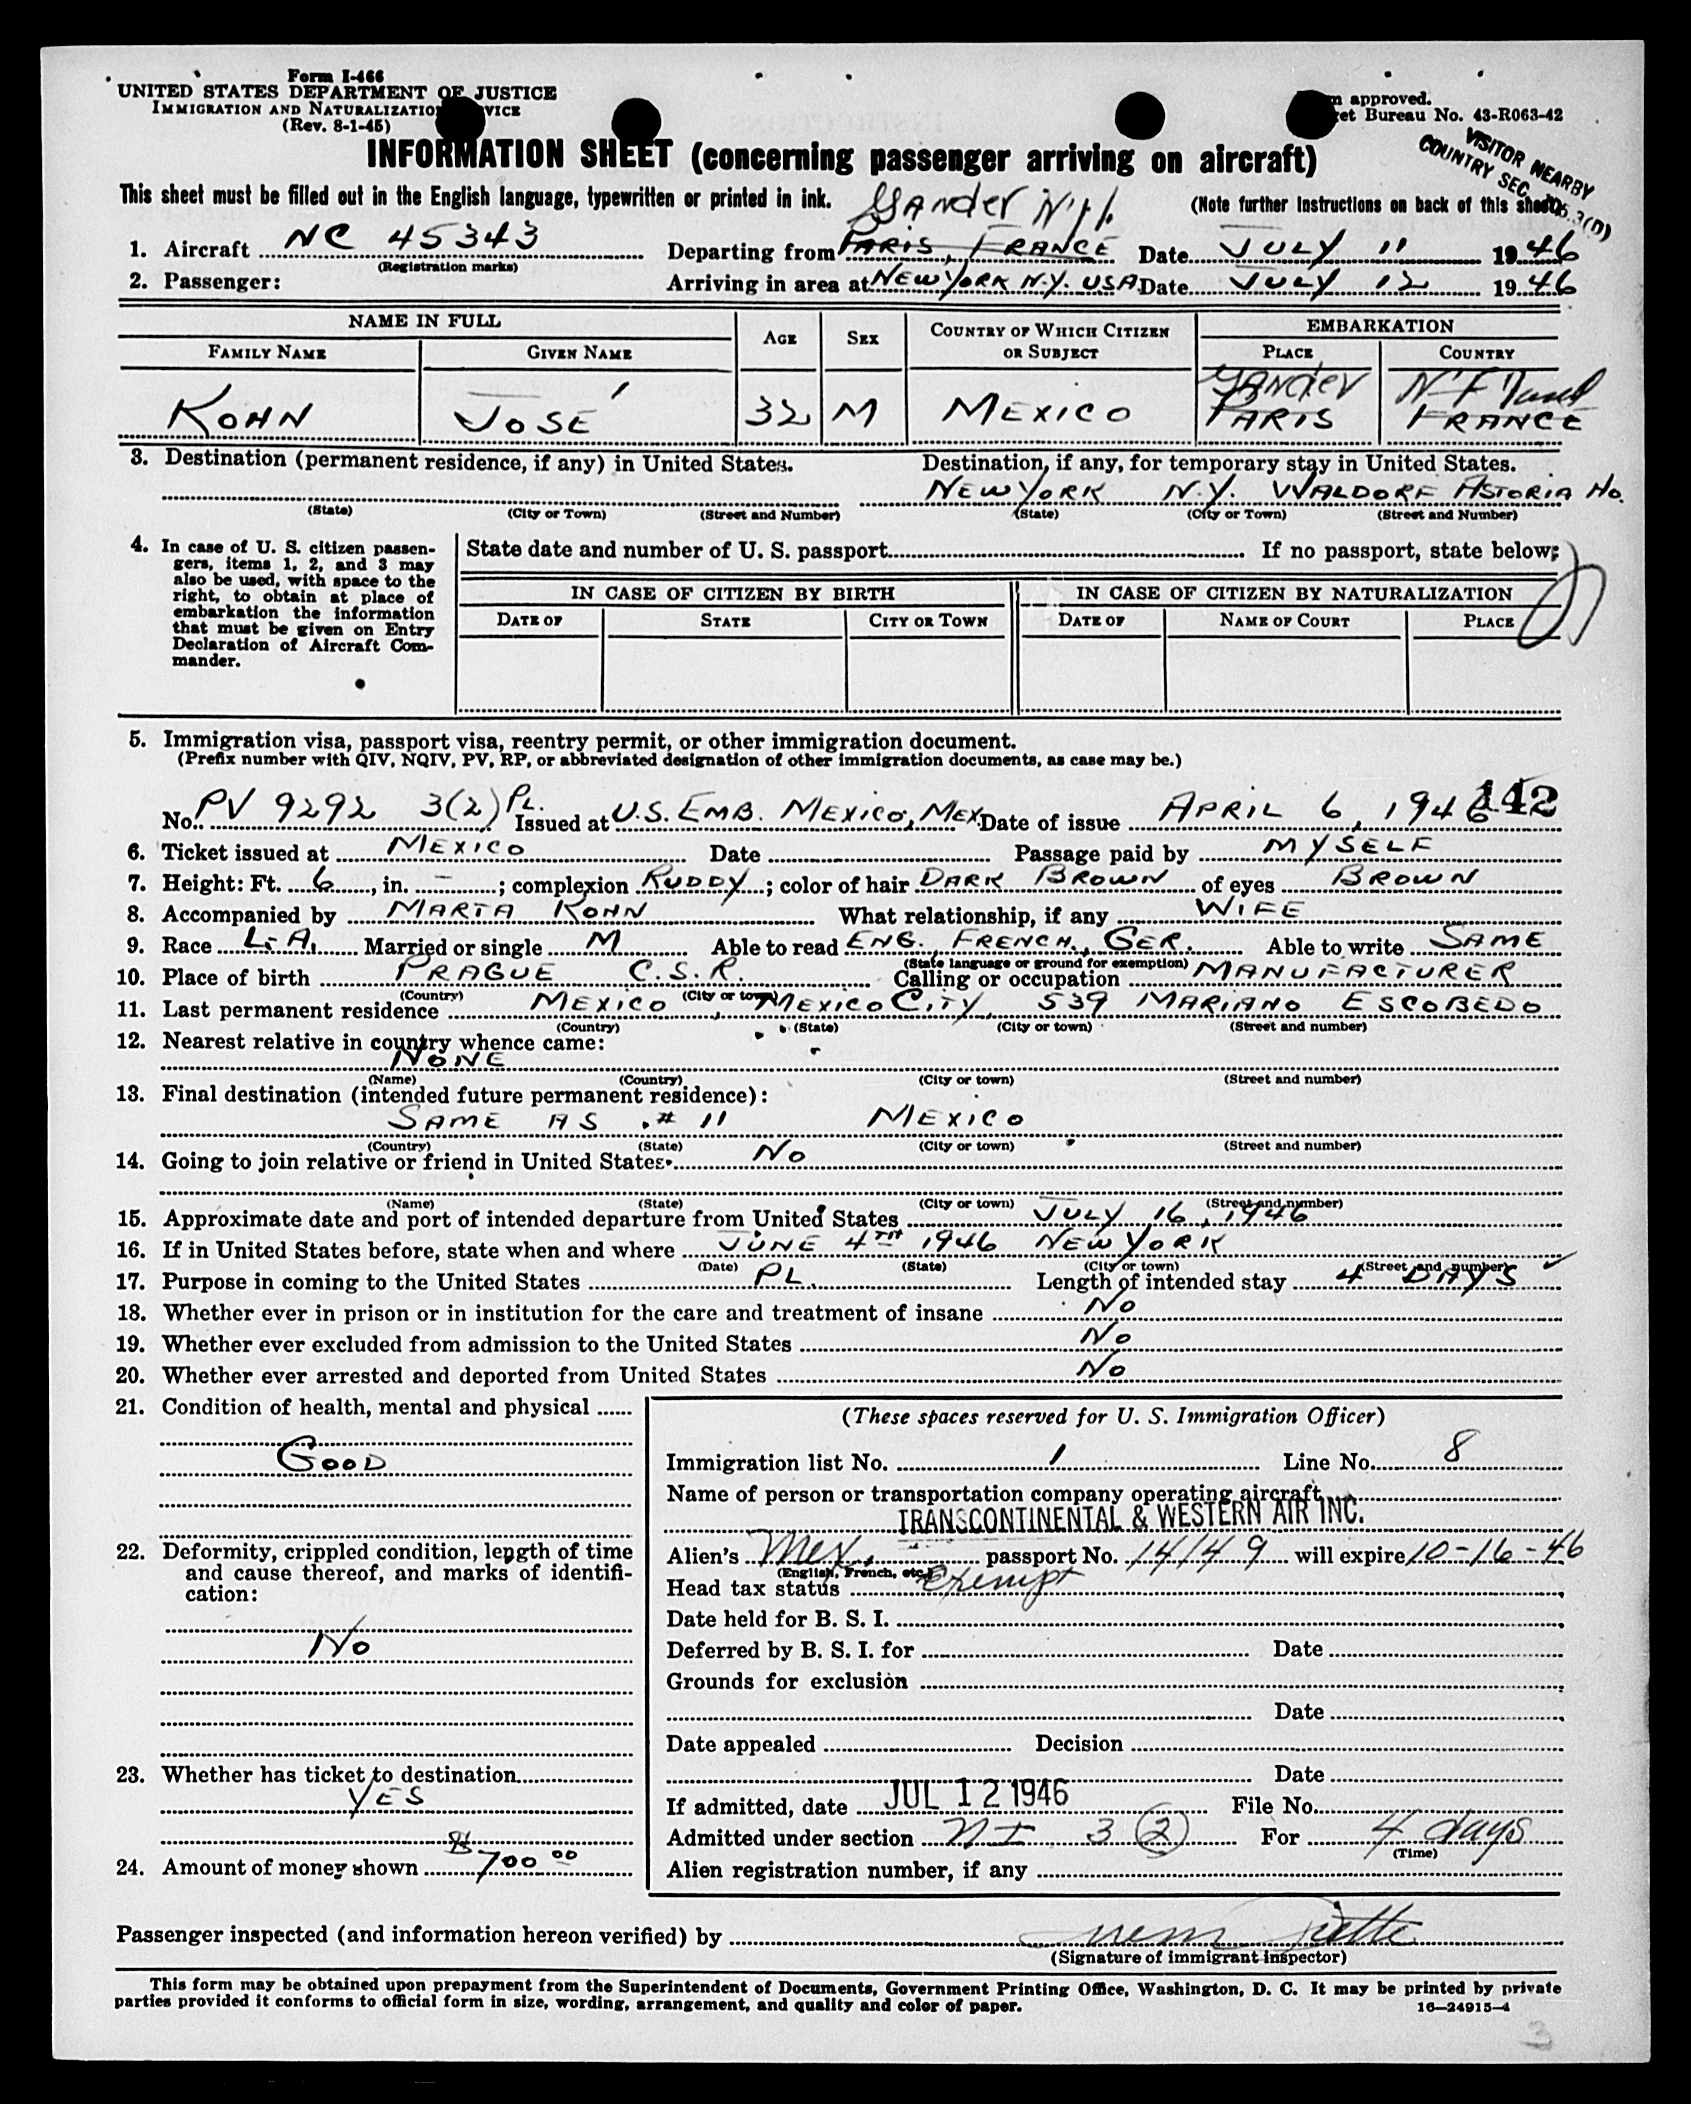 Form I-466
UNITED STATES DEPARTMENT OF JUSTICE
IMMIGRATION AND NATURALIZATION SERVICE
(Rev. 8-1-45)
approved.
et Bureau No. 43-R063-42
VISITOR NEARBY
COUNTRY SEC. 3(D)
INFORMATION SHEET (concerning passenger arriving on aircraft)
This sheet must be filled out in the English language, typewritten or printed in ink.
(Note further instructions on back of this sheet)
Gander N'f'l.
1. Aircraft NC 45343 Departing from PARIS, FRANCE Date JULY 11 1946
(Registration marks)
2. Passenger: Arriving in area at NEW YORK N.Y. USA Date JULY 12 1946
NAME IN FULL AGE SEX COUNTRY OF WHICH CITIZEN OR SUBJECT EMBARKATION
FAMILY NAME GIVEN NAME PLACE COUNTRY
Gander
KOHN JOSÉ 32 M MEXICO PARIS FRANCE
3. Destination (permanent residence, if any) in United States. Destination, if any, for temporary stay in United States.
NEW YORK N.Y. WALDORF ASTORIA Ho.
(State) (City or Town) (Street and Number) (State) (City or Town) (Street and Number)
4. In case of U. S. citizen passengers, items 1, 2, and 3 may also be used, with space to the right, to obtain at place of embarkation the information that must be given on Entry Declaration of Aircraft Commander.
State date and number of U. S. passport If no passport, state below:
IN CASE OF CITIZEN BY BIRTH IN CASE OF CITIZEN BY NATURALIZATION
DATE OF STATE CITY OR TOWN DATE OF NAME OF COURT PLACE
5. Immigration visa, passport visa, reentry permit, or other immigration document.
(Prefix number with QIV, NQIV, PV, RP, or abbreviated designation of other immigration documents, as case may be.)
142
No. PV 9292 3(2) PL. Issued at U.S. EMB. MEXICO, MEX. Date of issue APRIL 6, 1946
6. Ticket issued at MEXICO Date Passage paid by MYSELF
7. Height: Ft. 6, in. -; complexion RUDDY; color of hair DARK BROWN of eyes BROWN
8. Accompanied by MARTA KOHN What relationship, if any WIFE
9. Race L.A. Married or single M Able to read ENG., FRENCH, GER. Able to write SAME
(State language or ground for exemption)
10. Place of birth PRAGUE C.S.R. Calling or occupation MANUFACTURER
(Country) (City or town)
11. Last permanent residence MEXICO, MEXICO CITY, 539 MARIANO ESCOBEDO
(Country) (State) (City or town) (Street and number)
12. Nearest relative in country whence came:
NONE
(Name) (Country) (City or town) (Street and number)
13. Final destination (intended future permanent residence):
SAME AS # 11 MEXICO
(Country) (State) (City or town) (Street and number)
14. Going to join relative or friend in United States NO
(Name) (State) (City or town) (Street and number)
15. Approximate date and port of intended departure from United States JULY 16, 1946
16. If in United States before, state when and where JUNE 4TH 1946 NEW YORK
(Date) (State) (City or town) (Street and number)
17. Purpose in coming to the United States PL. Length of intended stay 4 DAYS
18. Whether ever in prison or in institution for the care and treatment of insane NO
19. Whether ever excluded from admission to the United States NO
20. Whether ever arrested and deported from United States NO
21. Condition of health, mental and physical
GOOD
22. Deformity, crippled condition, length of time and cause thereof, and marks of identification:
NO
23. Whether has ticket to destination
YES
24. Amount of money shown $700 00
(These spaces reserved for U. S. Immigration Officer)
Immigration list No. 1 Line No. 8
Name of person or transportation company operating aircraft
TRANSCONTINENTAL & WESTERN AIR INC.
Alien's Mex. passport No. 14149 will expire 10-16-46
(English, French, etc.)
Head tax status Exempt
Date held for B. S. I.
Deferred by B. S. I. for Date
Grounds for exclusion
Date
Date appealed Decision
Date
If admitted, date JUL 12 1946 File No.
Admitted under section NI 3 (2) For 4 days
(Time)
Alien registration number, if any
Passenger inspected (and information hereon verified) by
(Signature of immigrant inspector)
This form may be obtained upon prepayment from the Superintendent of Documents, Government Printing Office, Washington, D. C. It may be printed by private
parties provided it conforms to official form in size, wording, arrangement, and quality and color of paper.
16—24915-4
3